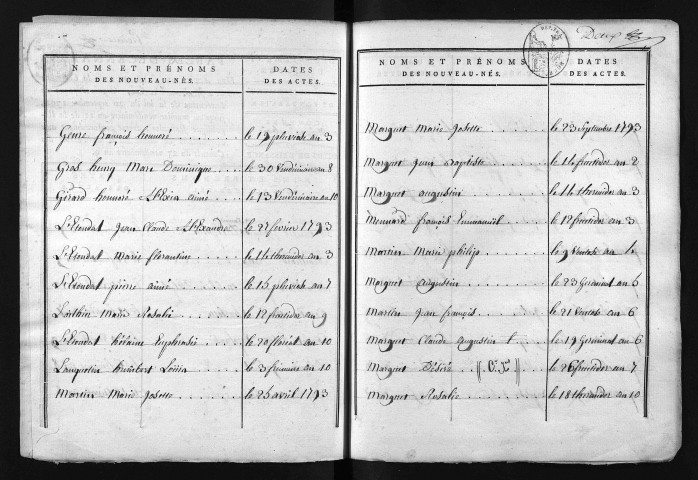 NOMS ET PRÉNOMS DES NOUVEAU-NÉS. DATES DES ACTES.
Genre françois honnoré le 19 pluviose an 3
Gras henry Marc Dominique le 30 Vendémiaire an 8
Gérard honnoré Alexis aimé le 13 Vendémiaire an 10
L'Etondal Jean Claude Alexandre le 27 février 1793
L'Etondal Marie florentine le 14 thermidor an 3
L'Etondal pierre aimé le 15 pluviose an 7
Marie Rosalie le 12 fructidor an 9
L'Etondal hélaine Euphrasie le 20 floréal an 10
Languetin Louisa le 3 frimaire an 10
Martin Marie Josette le 25 avril 1793
Deux
NOMS ET PRÉNOMS DES NOUVEAU-NÉS. DATES DES ACTES.
Marguet Marie Josette le 23 Septembre 1793
Marguet Jean Baptiste le 14 fructidor an 2
Marguet augustin le 14 thermidor an 3
Monnard françois Emmanuël le 12 fructidor an 3
Martin Marie philipe le 9 Ventose an 4
Marguet augustin le 23 Germinal an 5
Martin Jean françois le 21 Ventose an 6
Marguet Claude augustin le 19 Germinal an 6
Marguet Désiré le 26 fructidor an 7
Marguet Rosalie le 18 thermidor an 10